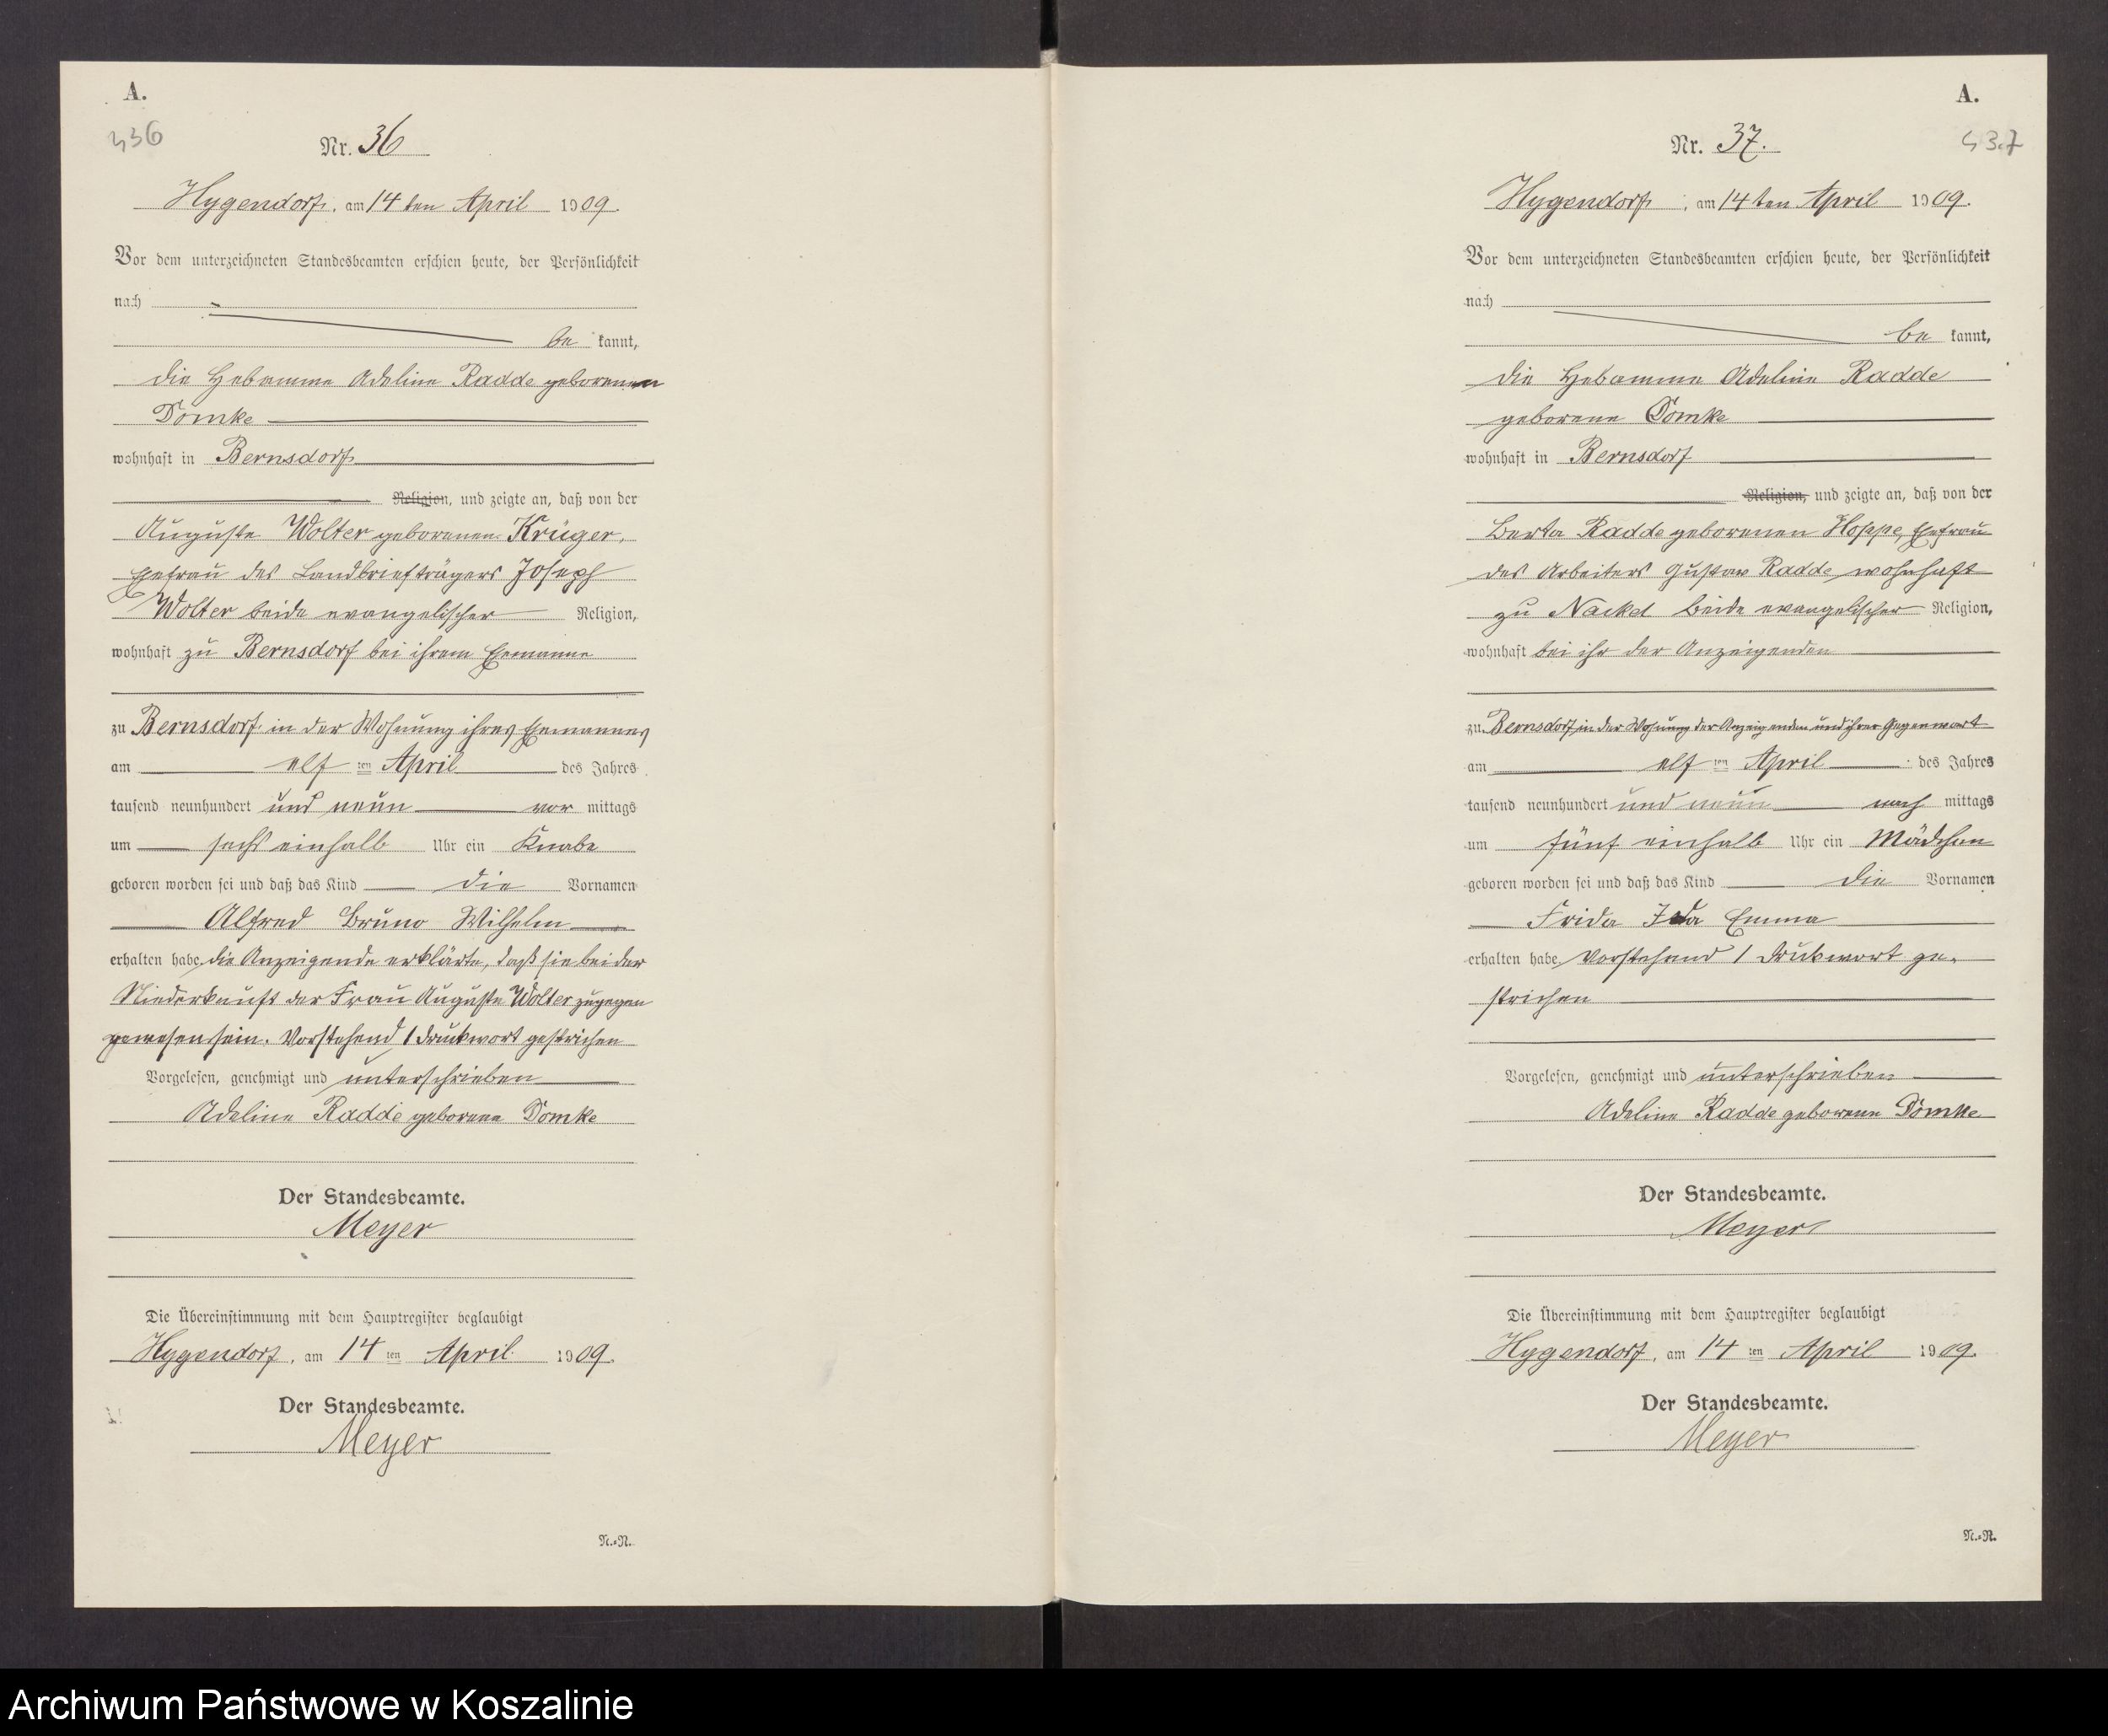 A.
436
Nr. 36
Hygendorf, am 14 ten April 1909.
Vor dem unterzeichneten Standesbeamten erschien heute, der Persönlichkeit
nach
be kannt,
die Hebamme Adeline Radde geborenen
Domke
wohnhaft in Bernsdorf
Religion, und zeigte an, daß von der
Auguste Wolter geborenen Krüger,
Ehefrau des Landbriefträgers Joseph
Wolter beide evangelischer Religion,
wohnhaft zu Bernsdorf bei ihrem Ehemanne
zu Bernsdorf in der Wohnung ihres Ehemannes
am elf ten April des Jahres
tausend neunhundert und neun vor mittags
um sechs einhalb Uhr ein Knabe
geboren worden sei und daß das Kind die Vornamen
Alfred Bruno Wilhelm
erhalten habe. die Anzeigende erklärte, daß sie bei der
Niederkunft der Frau Auguste Wolter zugegen
gewesen sein. Vorstehend 1 Druckwort gestrichen
Vorgelesen, genehmigt und unterschrieben
Adeline Radde geborene Domke
Der Standesbeamte.
Meyer
Die Übereinstimmung mit dem Hauptregister beglaubigt
Hygendorf, am 14 ten April 1909.
Der Standesbeamte.
Meyer
N.=N.
A.
437
Nr. 37.
Hygendorf, am 14 ten April 1909.
Vor dem unterzeichneten Standesbeamten erschien heute, der Persönlichkeit
nach
be kannt,
die Hebamme Adeline Radde
geborene Domke
wohnhaft in Bernsdorf
Religion, und zeigte an, daß von der
Berta Radde geborenen Hoppe, Ehefrau
des Arbeiters Gustav Radde wohnhaft
zu Nackel beide evangelischer Religion,
wohnhaft bei ihr der Anzeigenden
zu Bernsdorf in der Wohnung der Anzeigenden und ihrer Gegenwart
am elf ten April des Jahres
tausend neunhundert und neun nach mittags
um fünf einhalb Uhr ein Mädchen
geboren worden sei und daß das Kind die Vornamen
Frida Ida Emma
erhalten habe. Vorstehend 1 Druckwort ge-
strichen
Vorgelesen, genehmigt und unterschrieben
Adeline Radde geborene Domke
Der Standesbeamte.
Meyer
Die Übereinstimmung mit dem Hauptregister beglaubigt
Hygendorf, am 14 ten April 1909.
Der Standesbeamte.
Meyer
N.=N.
Archiwum Państwowe w Koszalinie